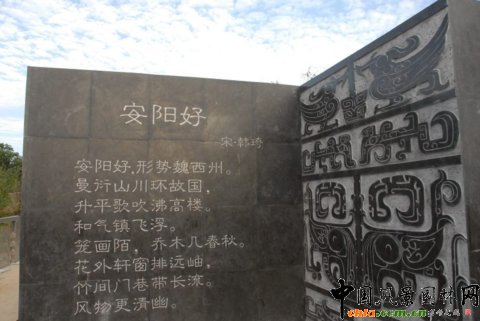 安阳好
宋·韩琦
安阳好,形势魏西州。
曼衍山川环故国,
升平歌吹沸高楼。
和气镇飞浮。
笼画陌,乔木几春秋。
花外轩窗排远岫,
竹间门巷带长流。
风物更清幽。
中国风景图片网